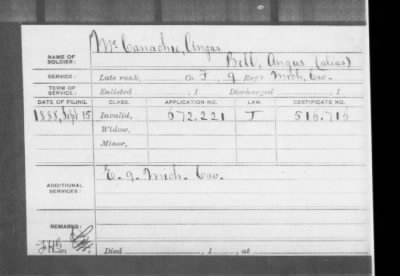 McCanachie, Angus
NAME OF SOLDIER: Bell, Angus (alias)
SERVICE: Late rank, Co. F, 9 Reg't Mich. Cav.
TERM OF SERVICE: Enlisted , 1 Discharged , 1
DATE OF FILING. CLASS. APPLICATION NO. LAW. CERTIFICATE NO.
1888, Sept 15 Invalid, 672.221 J 516.716
Widow,
Minor,
ADDITIONAL SERVICES: E. 9. Mich. Cav.
REMARKS:
Died , 1 , at